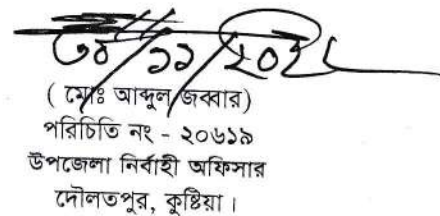 ( মোঃ আব্দুল জব্বার)
পরিচিতি নং - ২০৬১৯
উপজেলা নির্বাহী অফিসার
দৌলতপুর, কুষ্টিয়া।